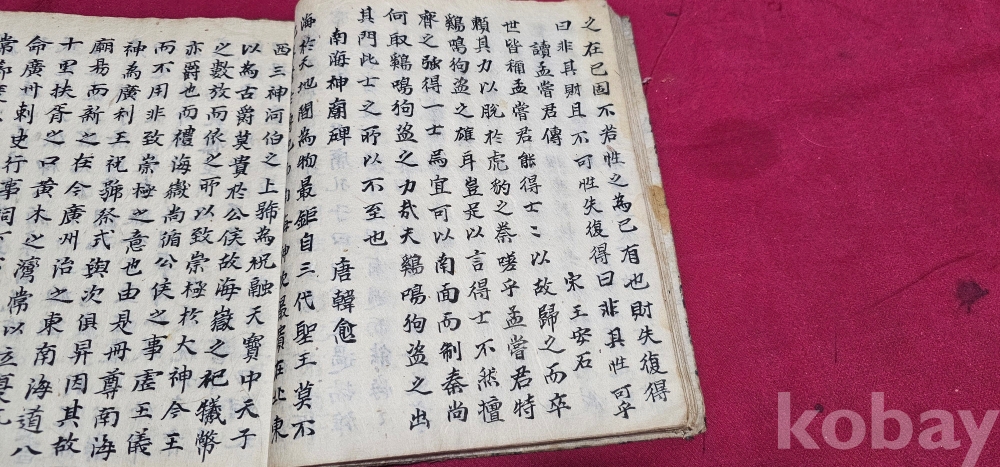 之在已固不若性之為已有也財失復得
曰非其財且不可性失復得曰非其性可乎
讀孟嘗君傳 宋王安石
世皆稱孟嘗君能得士〻以故歸之而卒
賴其力以脫於虎豹之秦嗟乎孟嘗君特
鷄鳴狗盜之雄耳豈足以言得士不然擅
齊之強得一士焉宜可以南面而制秦尚
何取鷄鳴狗盜之力哉夫鷄鳴狗盜之出
其門此士之所以不至也
南海神廟碑 唐韓愈
海於天地間為物最鉅自三代聖王莫不
神次最貴在北東
西三神河伯之上號為祝融天寶中天子
以為古爵莫貴於公侯故海嶽之祀犧幣
之數放而依之所以致崇極於大神今王
亦爵也而禮海嶽尚循公侯之事虛王儀
而不用非致崇極之意也由是冊尊南海
神為廣利王祝號祭式與次俱昇因其故
廟易而新之在今廣州治之東南海道八
十里扶胥之口黃木之灣常以立夏氣
命廣州刺史行事祠下
常節度
kobay